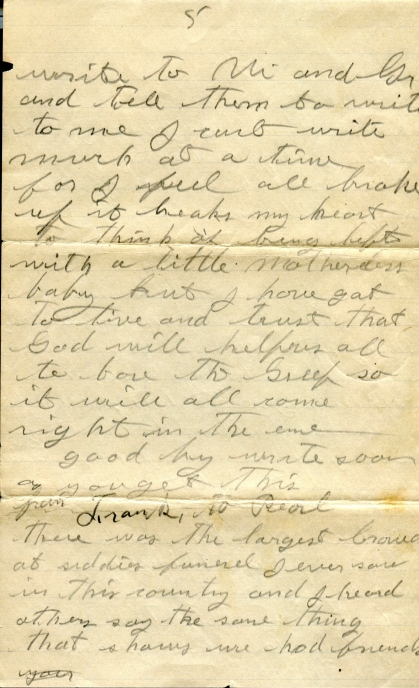 5
write to Mi and Gr
and tell them to write
to me I cant write
much at a time
for I feel all broke
up it breaks my heart
to think of being left
with a little Motherless
baby but I have got
to live and trust that
God will help us all
to bare the Greef so
it will all come
right in the ene
good by write soon
as you get this
from Frank, to Pearl
there was the largest Croud
at siddies funeral I ever saw
in this country and I heard
others say the same thing
that shows we had friends